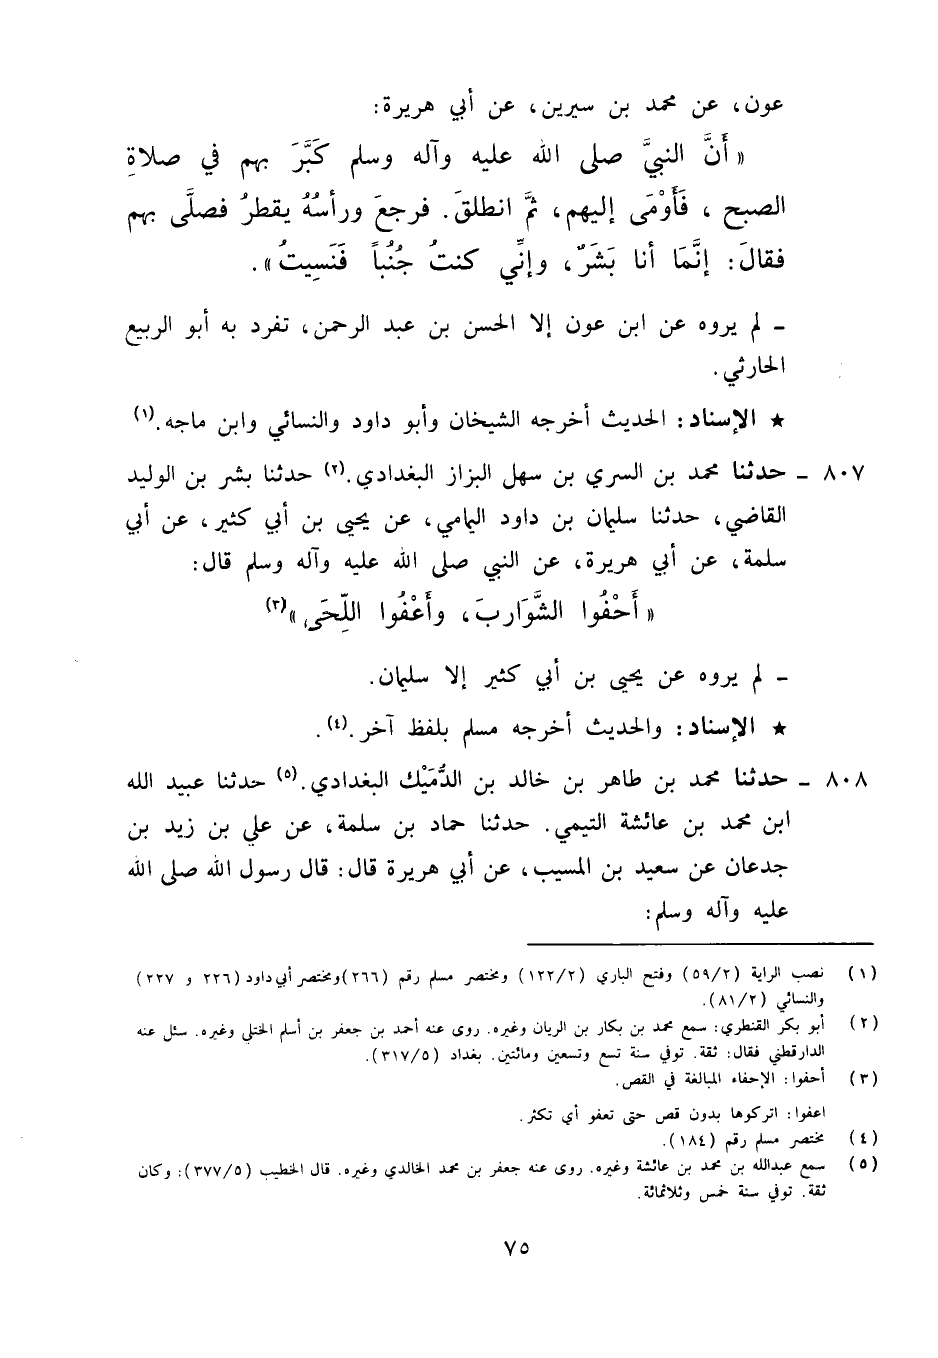 عون، عن محمد بن سيرين، عن أبي هريرة:
« أَنَّ النبيَّ صلى الله عليه وآله وسلم كَبَّرَ بهم في صلاةِ
الصبح ، فَأَوْمَى إليهم، ثمَّ انطلقَ. فرجعَ ورأسُهُ يقطرُ فصلَّى بهم
فقالَ: إنَّمَا أنا بَشَرٌ، وإنِّي كنتُ جُنُباً فَنَسِيتُ».
- لم يروه عن ابن عون إلا الحسن بن عبد الرحمن، تفرد به أبو الربيع
الحارثي.
★ الإسناد: الحديث أخرجه الشيخان وأبو داود والنسائي وابن ماجه.(١)
٨٠٧ - حدثنا محمد بن السري بن سهل البزاز البغدادي.(٢) حدثنا بشر بن الوليد
القاضي، حدثنا سليمان بن داود اليمامي، عن يحيى بن أبي كثير، عن أبي
سلمة، عن أبي هريرة، عن النبي صلى الله عليه وآله وسلم قال:
« أَحْفُوا الشَّوَاربَ، وأَعْفُوا اللِّحَى »(٣)
- لم يروه عن يحيى بن أبي كثير إلا سليمان.
★ الإسناد: والحديث أخرجه مسلم بلفظ آخر.(٤).
٨٠٨ - حدثنا محمد بن طاهر بن خالد بن الدُّمَيْك البغدادي.(٥) حدثنا عبيد الله
ابن محمد بن عائشة التيمي. حدثنا حماد بن سلمة، عن علي بن زيد بن
جدعان عن سعيد بن المسيب، عن أبي هريرة قال: قال رسول الله صلى الله
عليه وآله وسلم:
(١) نصب الراية (٥٩/٢) وفتح الباري (١٢٢/٢) ومختصر مسلم رقم (٢٦٦)ومختصر أبي داود (٢٢٦ و ٢٢٧)
والنسائي (٨١/٢).
(٢) أبو بكر القنطري: سمع محمد بن بكار بن الريان وغيره. روى عنه أحمد بن جعفر بن أسلم الختلي وغيره. سئل عنه
الدارقطني فقال: ثقة. توفي سنة تسع وتسعين ومائتين. بغداد (٣١٧/٥).
(٣) أحفوا: الإحفاء المبالغة في القص.
اعفوا: اتركوها بدون قص حتى تعفو أي تكثر.
(٤) مختصر مسلم رقم (١٨٤).
(٥) سمع عبدالله بن محمد بن عائشة وغيره. روى عنه جعفر بن محمد الخالدي وغيره. قال الخطيب (٣٧٧/٥): وكان
ثقة. توفي سنة خمس وثلاثمائة.
٧٥